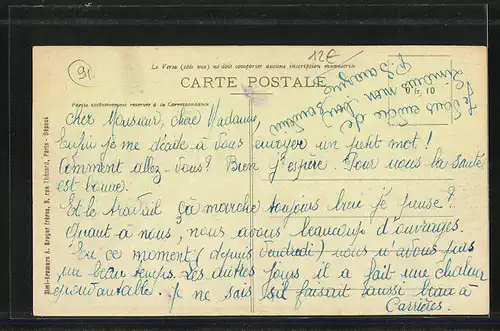 91
Le Verso (côté vue) ne doit comporter aucune inscription manuscrite
12€
CARTE POSTALE
Partie exclusivement réservée à la Correspondance
Je vous envoie de
mon
Cher Monsieur, chère Madame,
Enfin je me décide à vous envoyer un petit mot!
Comment allez-vous? Bien j'espère. Pour nous la santé
est bonne.
Et le travail ça marche toujours bien je pense?
Quant à nous, nous avons beaucoup d'ouvrages.
En ce moment (depuis vendredi) nous n'avons pas
un beau temps. Les autres jours il a fait une chaleur
épouvantable. Je ne sais s'il faisait aussi beau à
Carrières.
Dimi-Aromaro A. Breger frères, 9, rue Thénard, Paris - Déposé